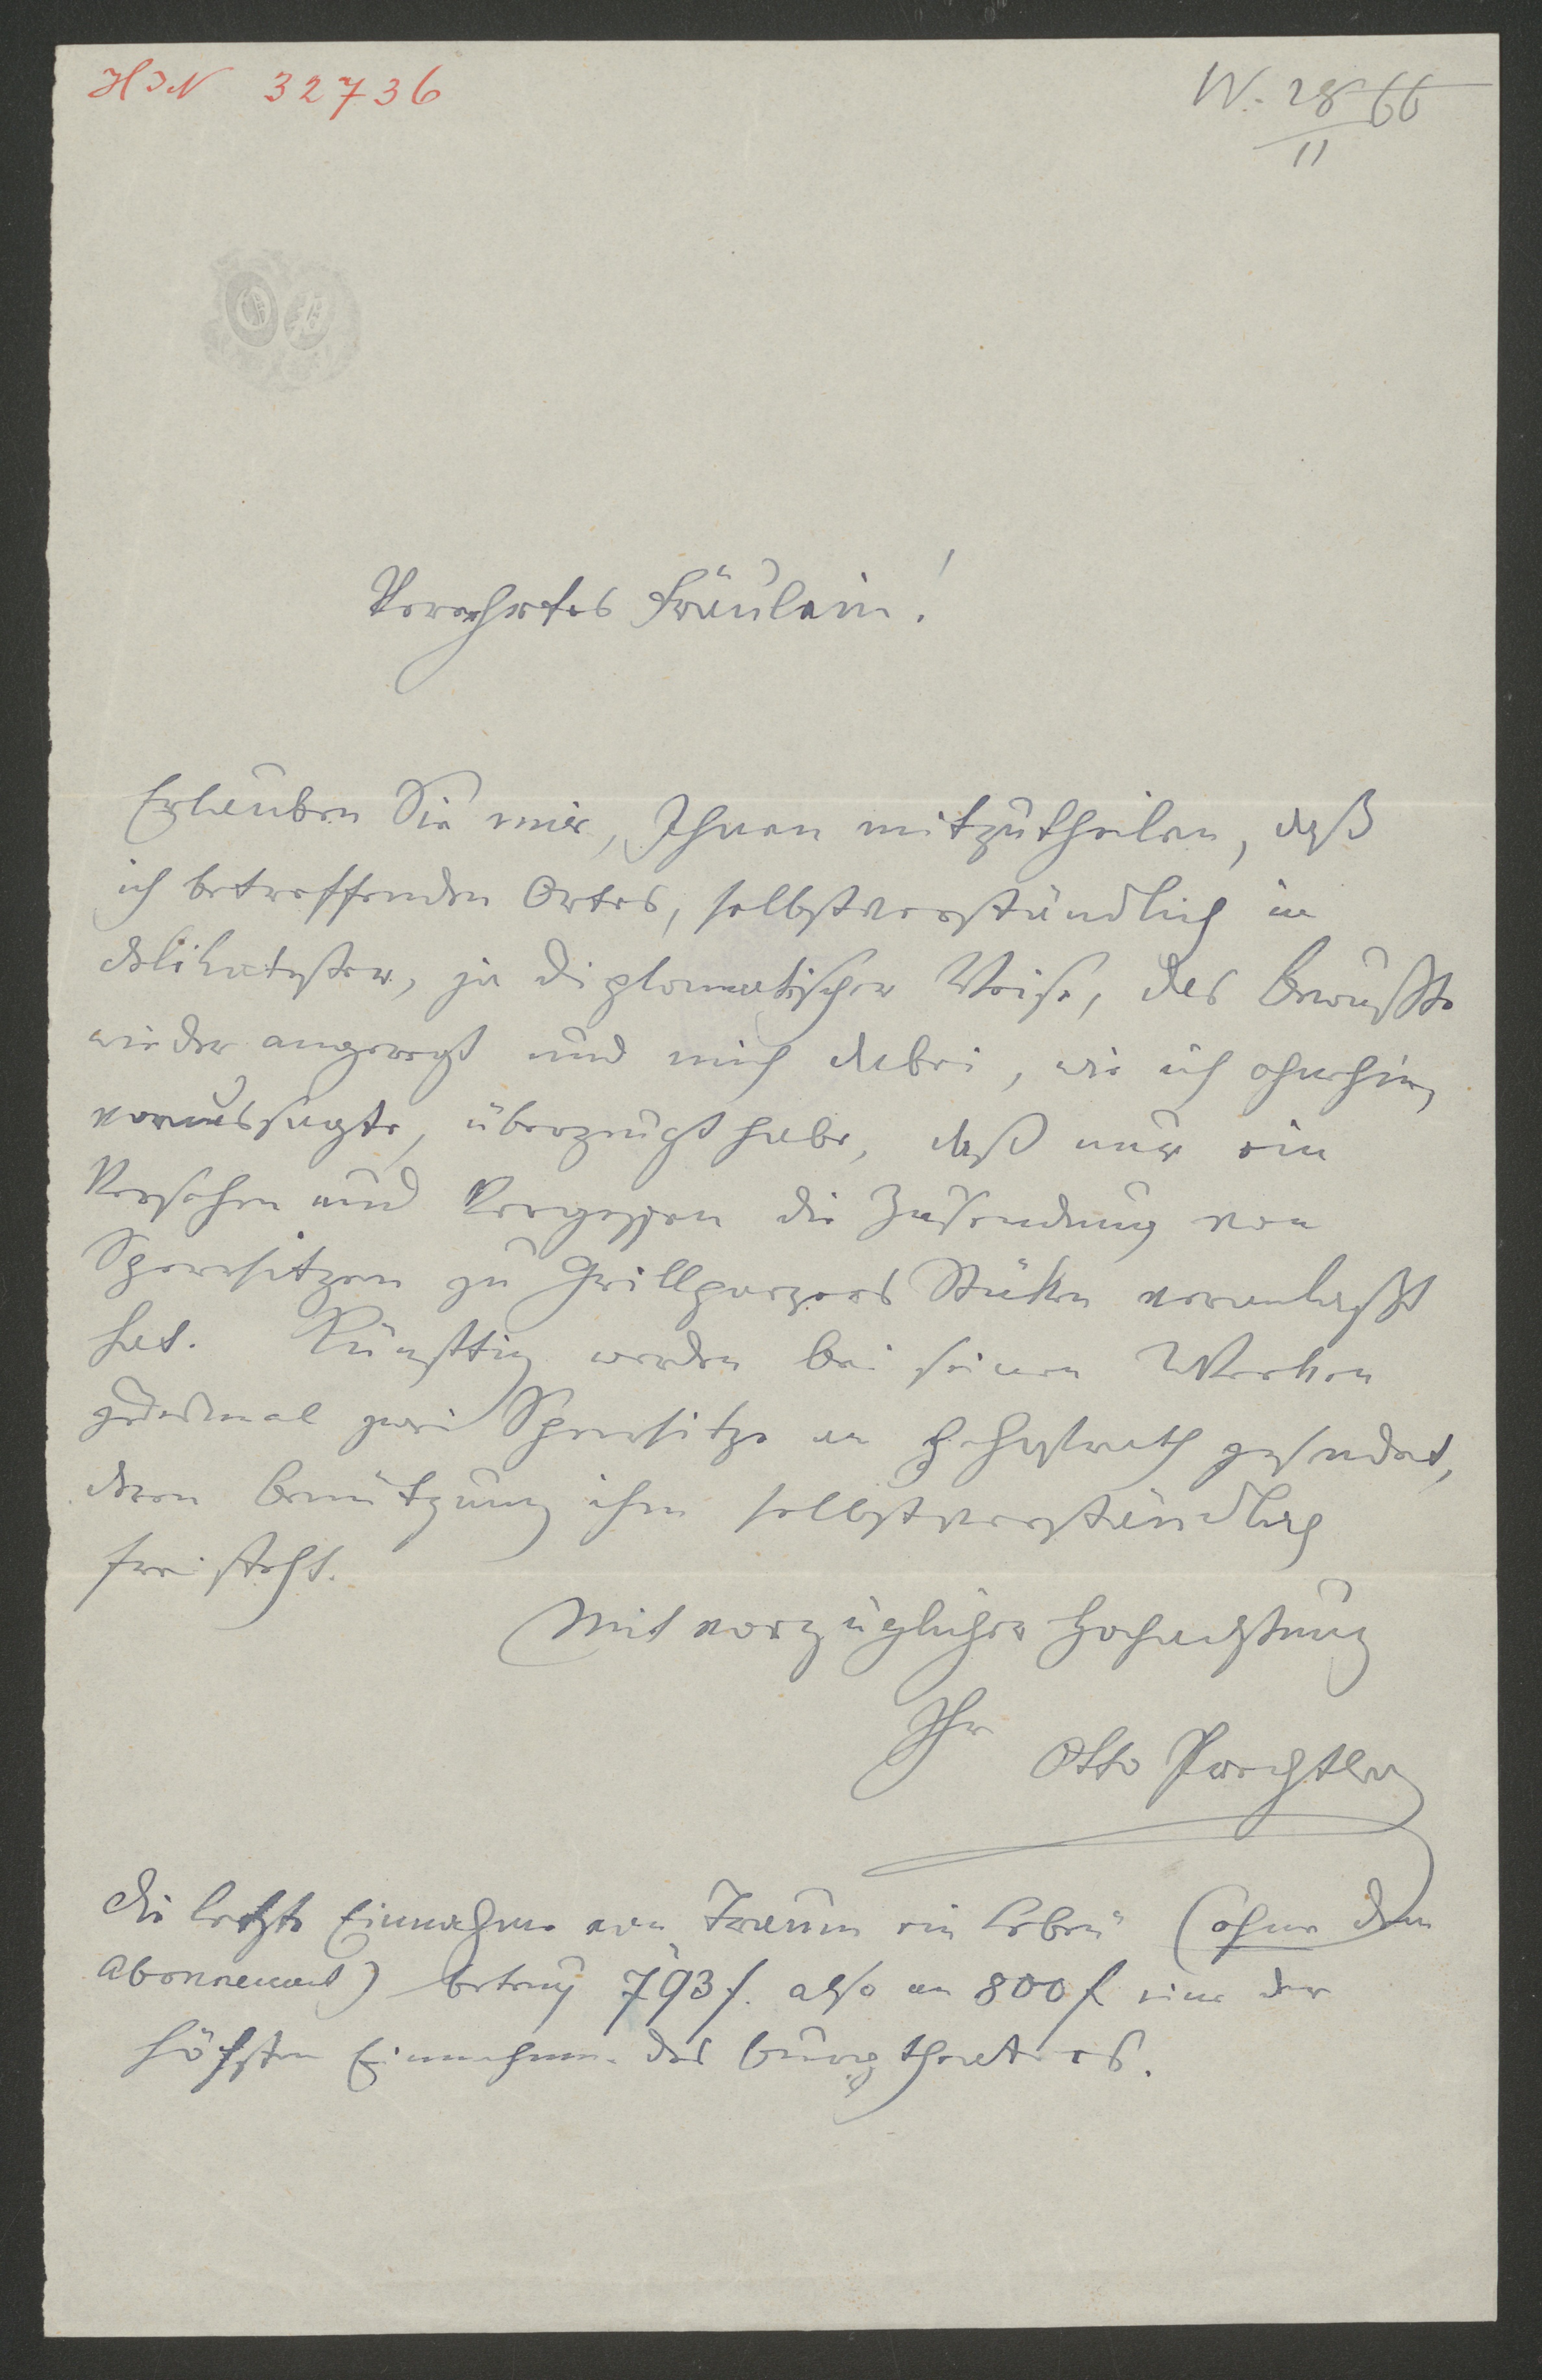 HIN 32736
W. 28/11 66
Verehrtes Fräulein!
Erlauben Sie mir, Ihnen mitzutheilen, daß
ich betreffenden Ortes, selbstverständlich in
delikatester, ja diplomatischer Weise, das Bewußte
wieder angeregt und mich dabei, wie ich ohnehin
voraussagte, überzeugt habe, daß nur ein
Versehen und Vergessen die Zusendung von
Sperrsitzen zu Grillparzers Stücken veranlaßt
hat. Künftig werden bei seinen Werken
jedesmal zwei Sperrsitze an H. Hofrath gesendet,
deren Benützung ihm selbstverständlich
frei steht.
Mit vorzüglicher Hochachtung
Ihr Otto Prechtler
Die letzte Einnahme von „Traum ein Leben" (ohne dem
Abonnement) betrug 793 f. also an 800 f eine der
höchsten Einnahmen des Burgtheaters.